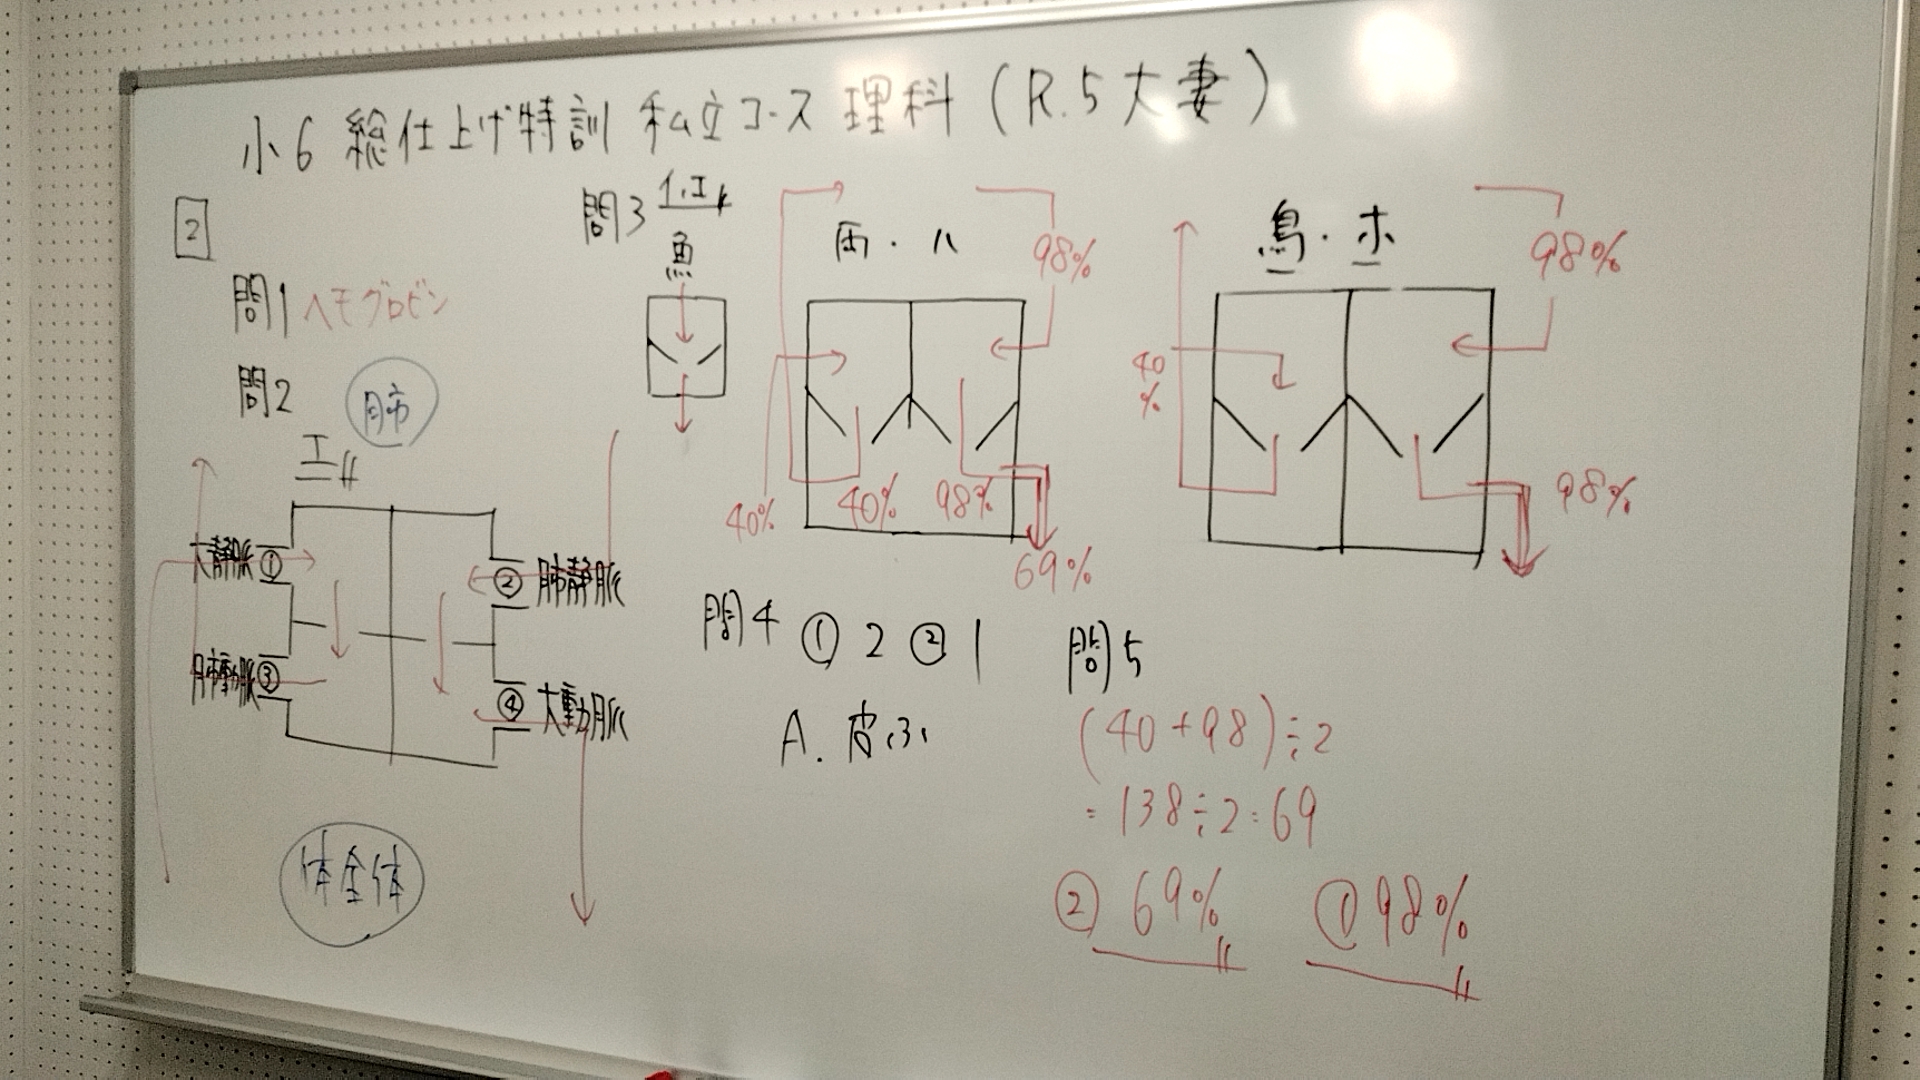 小6 総仕上げ特訓 私立コース 理科 (R.5大妻)
2
問1 ヘモグロビン
問2
肺
エ
大静脈 ①
② 肺静脈
肺動脈 ③
④ 大動脈
体全体
問3 イ.エ
魚
両・ハ
98%
40%
40%
98%
69%
鳥・ホ
98%
40%
98%
問4 ① 2 ② 1
A. 皮ふ
問5
(40+98)÷2
=138÷2=69
② 69%
① 98%